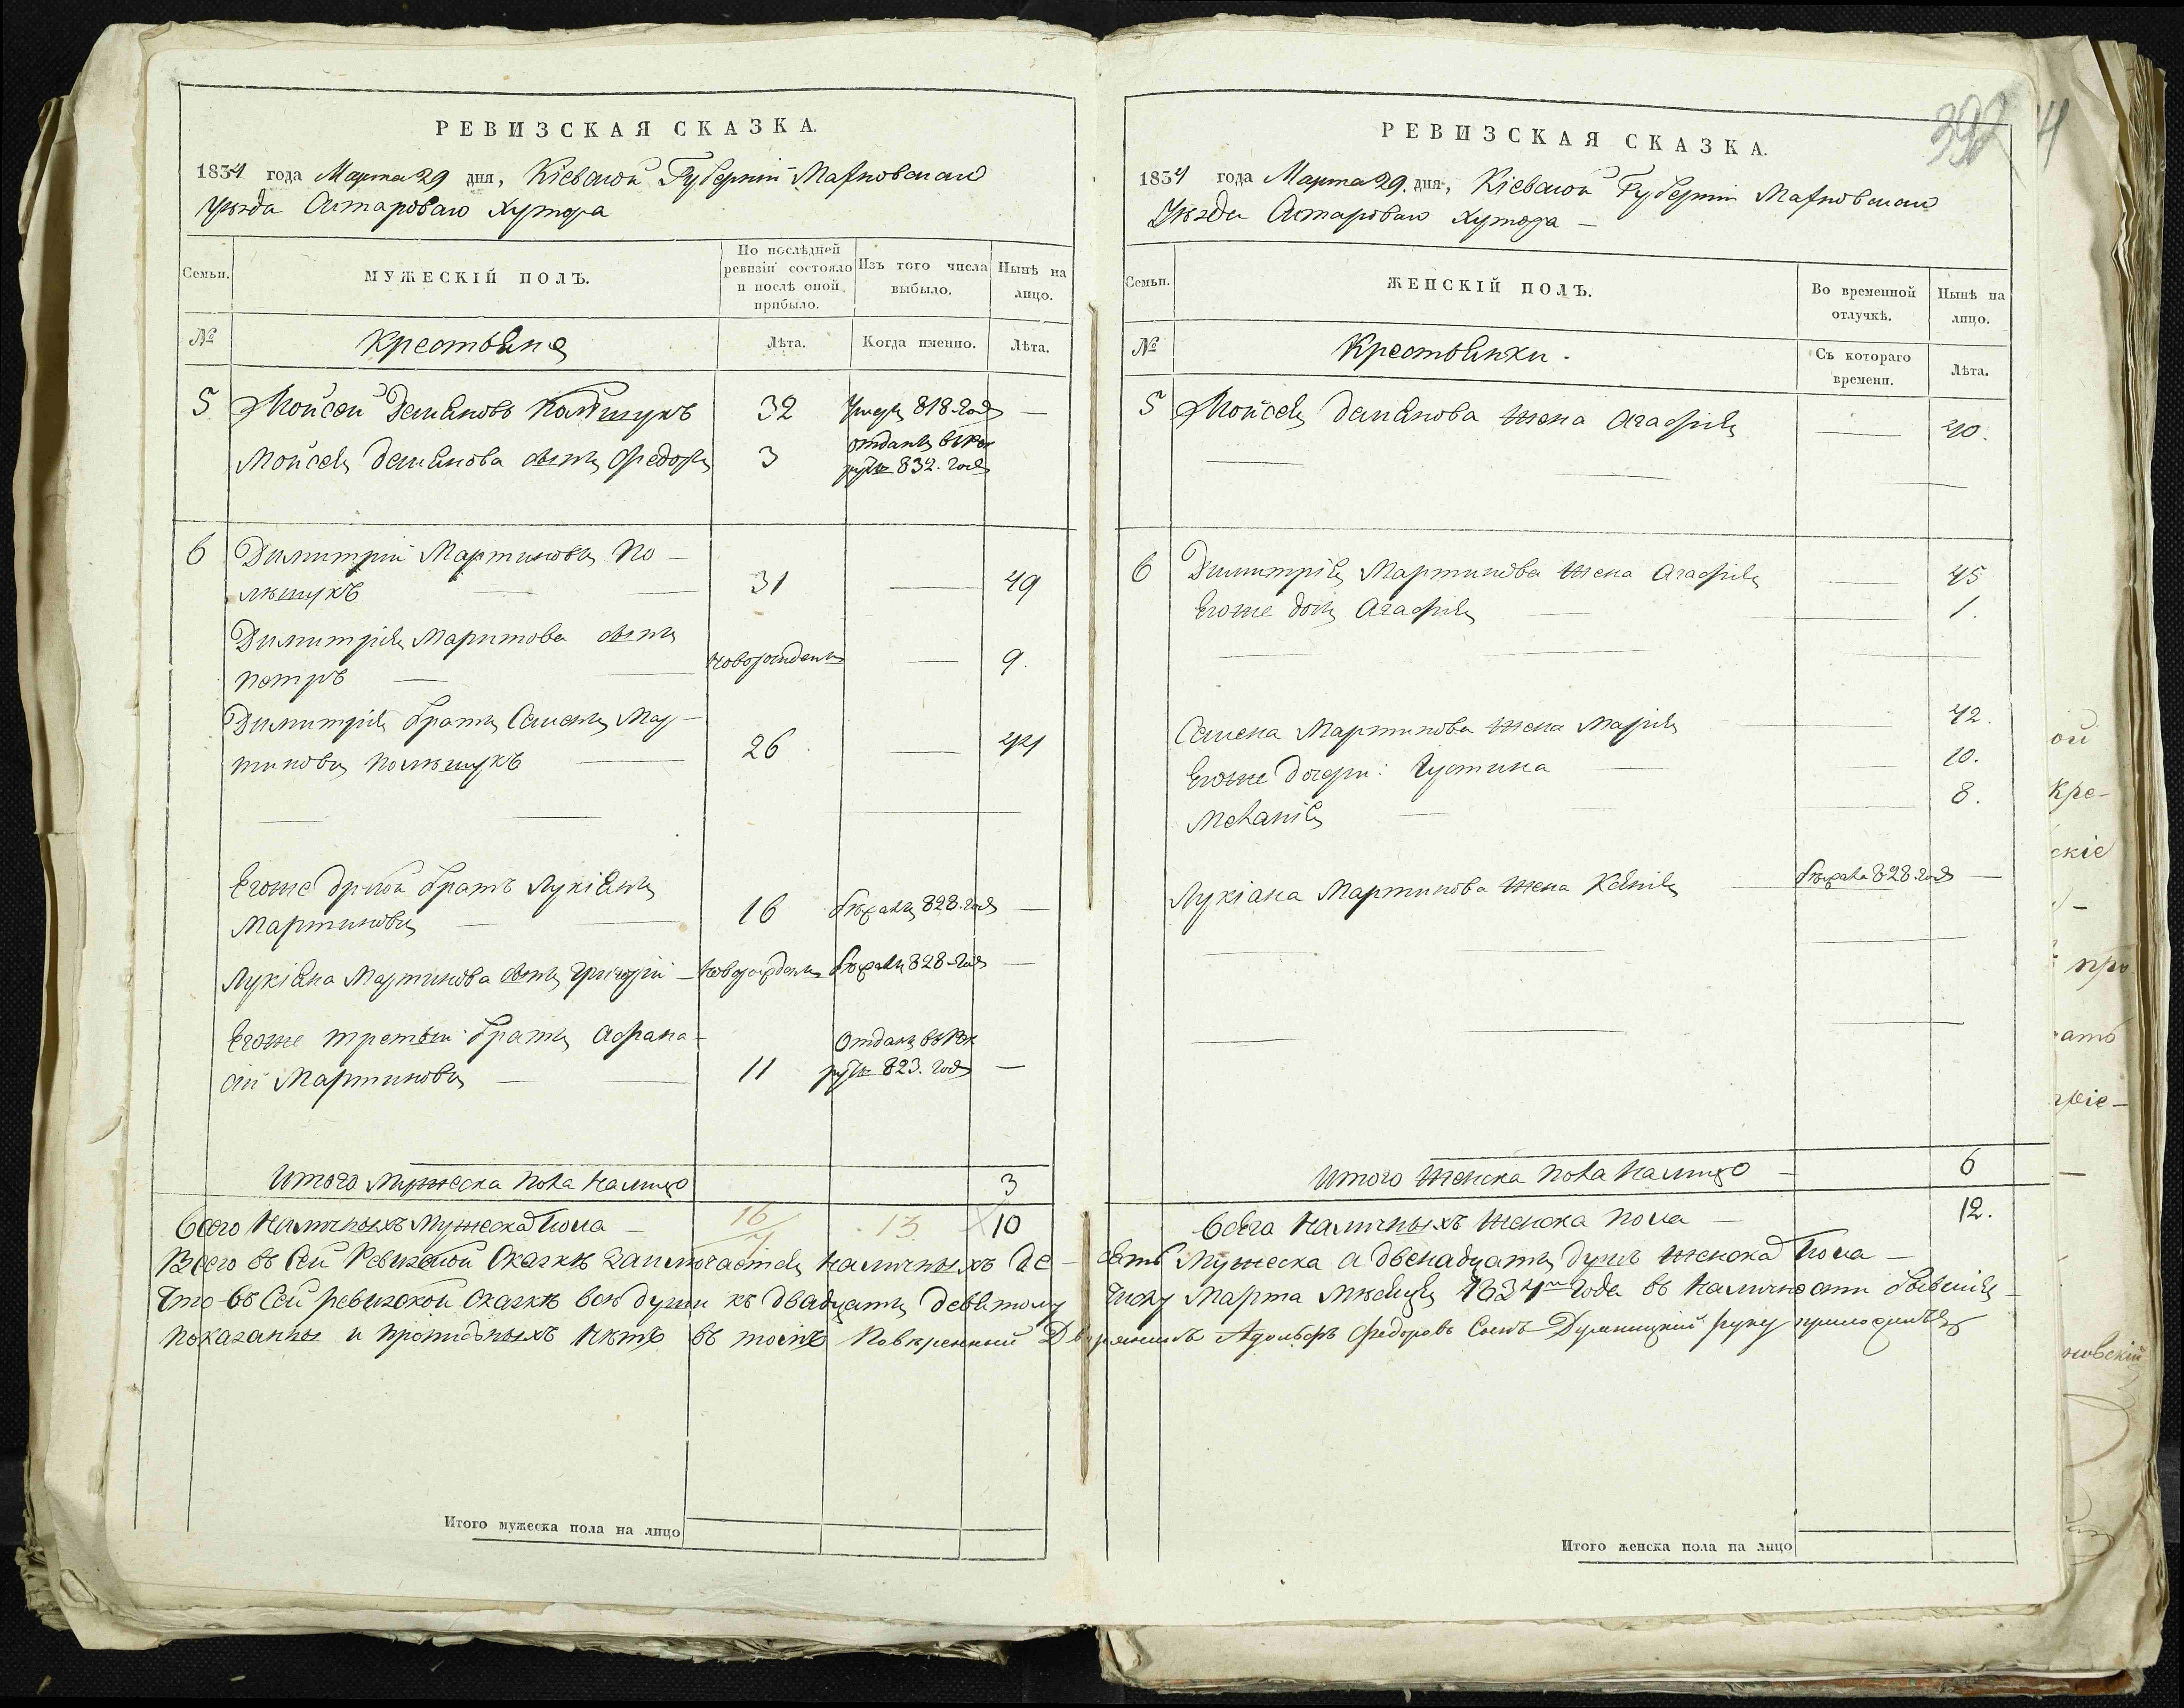 РЕВИЗСКАЯ СКАЗКА.
1834 года Марта 29 дня, Кіевской Губерніи Махновскаго
Уѣзда Хутора
Семьи.
МУЖЕСКІЙ ПОЛЪ.
По послѣдней ревизіи состояло и послѣ оной прибыло.
Изъ того числа выбыло.
Нынѣ на лицо.
№
Крестьяне
Лѣта.
Когда именно.
Лѣта.
5 Мойсей Демяновъ 32 Умеръ 818 года —
Мойсея Демянова сынъ Федоръ 3 отданъ въ рек
руты 832. года
6 Димитрій Мартиновъ По-
лѣщукъ 31 — 49
Димитрія Мартинова сынъ
Петръ новорожденъ — 9.
Димитрія братъ Семенъ Мар-
тиновъ Полѣщукъ 26 — 44
Егоже другой братъ Лукіянъ
Мартиновъ 16 бѣжалъ 828. года —
Лукіяна Мартинова сынъ Григорій новорожденъ бѣжалъ 828 года —
Егоже третый братъ Афана-
сій Мартиновъ 11 Отданъ въ рек
руты 823. года —
Итого Мужеска Пола налицо 3
Всего Наличныхъ Мужеска Пола 16 13 10
РЕВИЗСКАЯ СКАЗКА.
392
4
1834 года Марта 29. дня, Кіевской Губерніи Махновскаго
Уѣзда Хутора —
Семьи.
ЖЕНСКІЙ ПОЛЪ.
Во временной отлучкѣ.
Нынѣ на лицо.
№
Крестьянки.
Съ котораго времени.
Лѣта.
5 Мойсея Демянова жена Агафія — 40.
6 Димитрія Мартинова жена Агафія — 45
Егоже дочь Агафія — 1.
Семена Мартинова жена Марія 42.
Егоже дочери: Густина 10.
Меланія 8.
Лукіана Мартинова жена Ксенія бѣжала 828 года —
Итого женска пола налицо — 6
Всего наличныхъ женска пола — 12.
Всего въ сей Ревизской Сказкѣ заключается наличныхъ де-сять Мужеска а двенадцать душъ женска Пола —
Что въ Сей ревизской сказкѣ всѣ души къ двадцать девятому числу Марта мѣсяца 1834го года въ наличности бывшія
показанны и прописныхъ нѣтъ въ томъ Повѣренный Дворянинъ Адольфъ Федоровъ Сынъ руку приложилъ
Итого мужеска пола на лицо
Итого женска пола на лицо
ой
Кре-
скіе
про-
ать
новскій